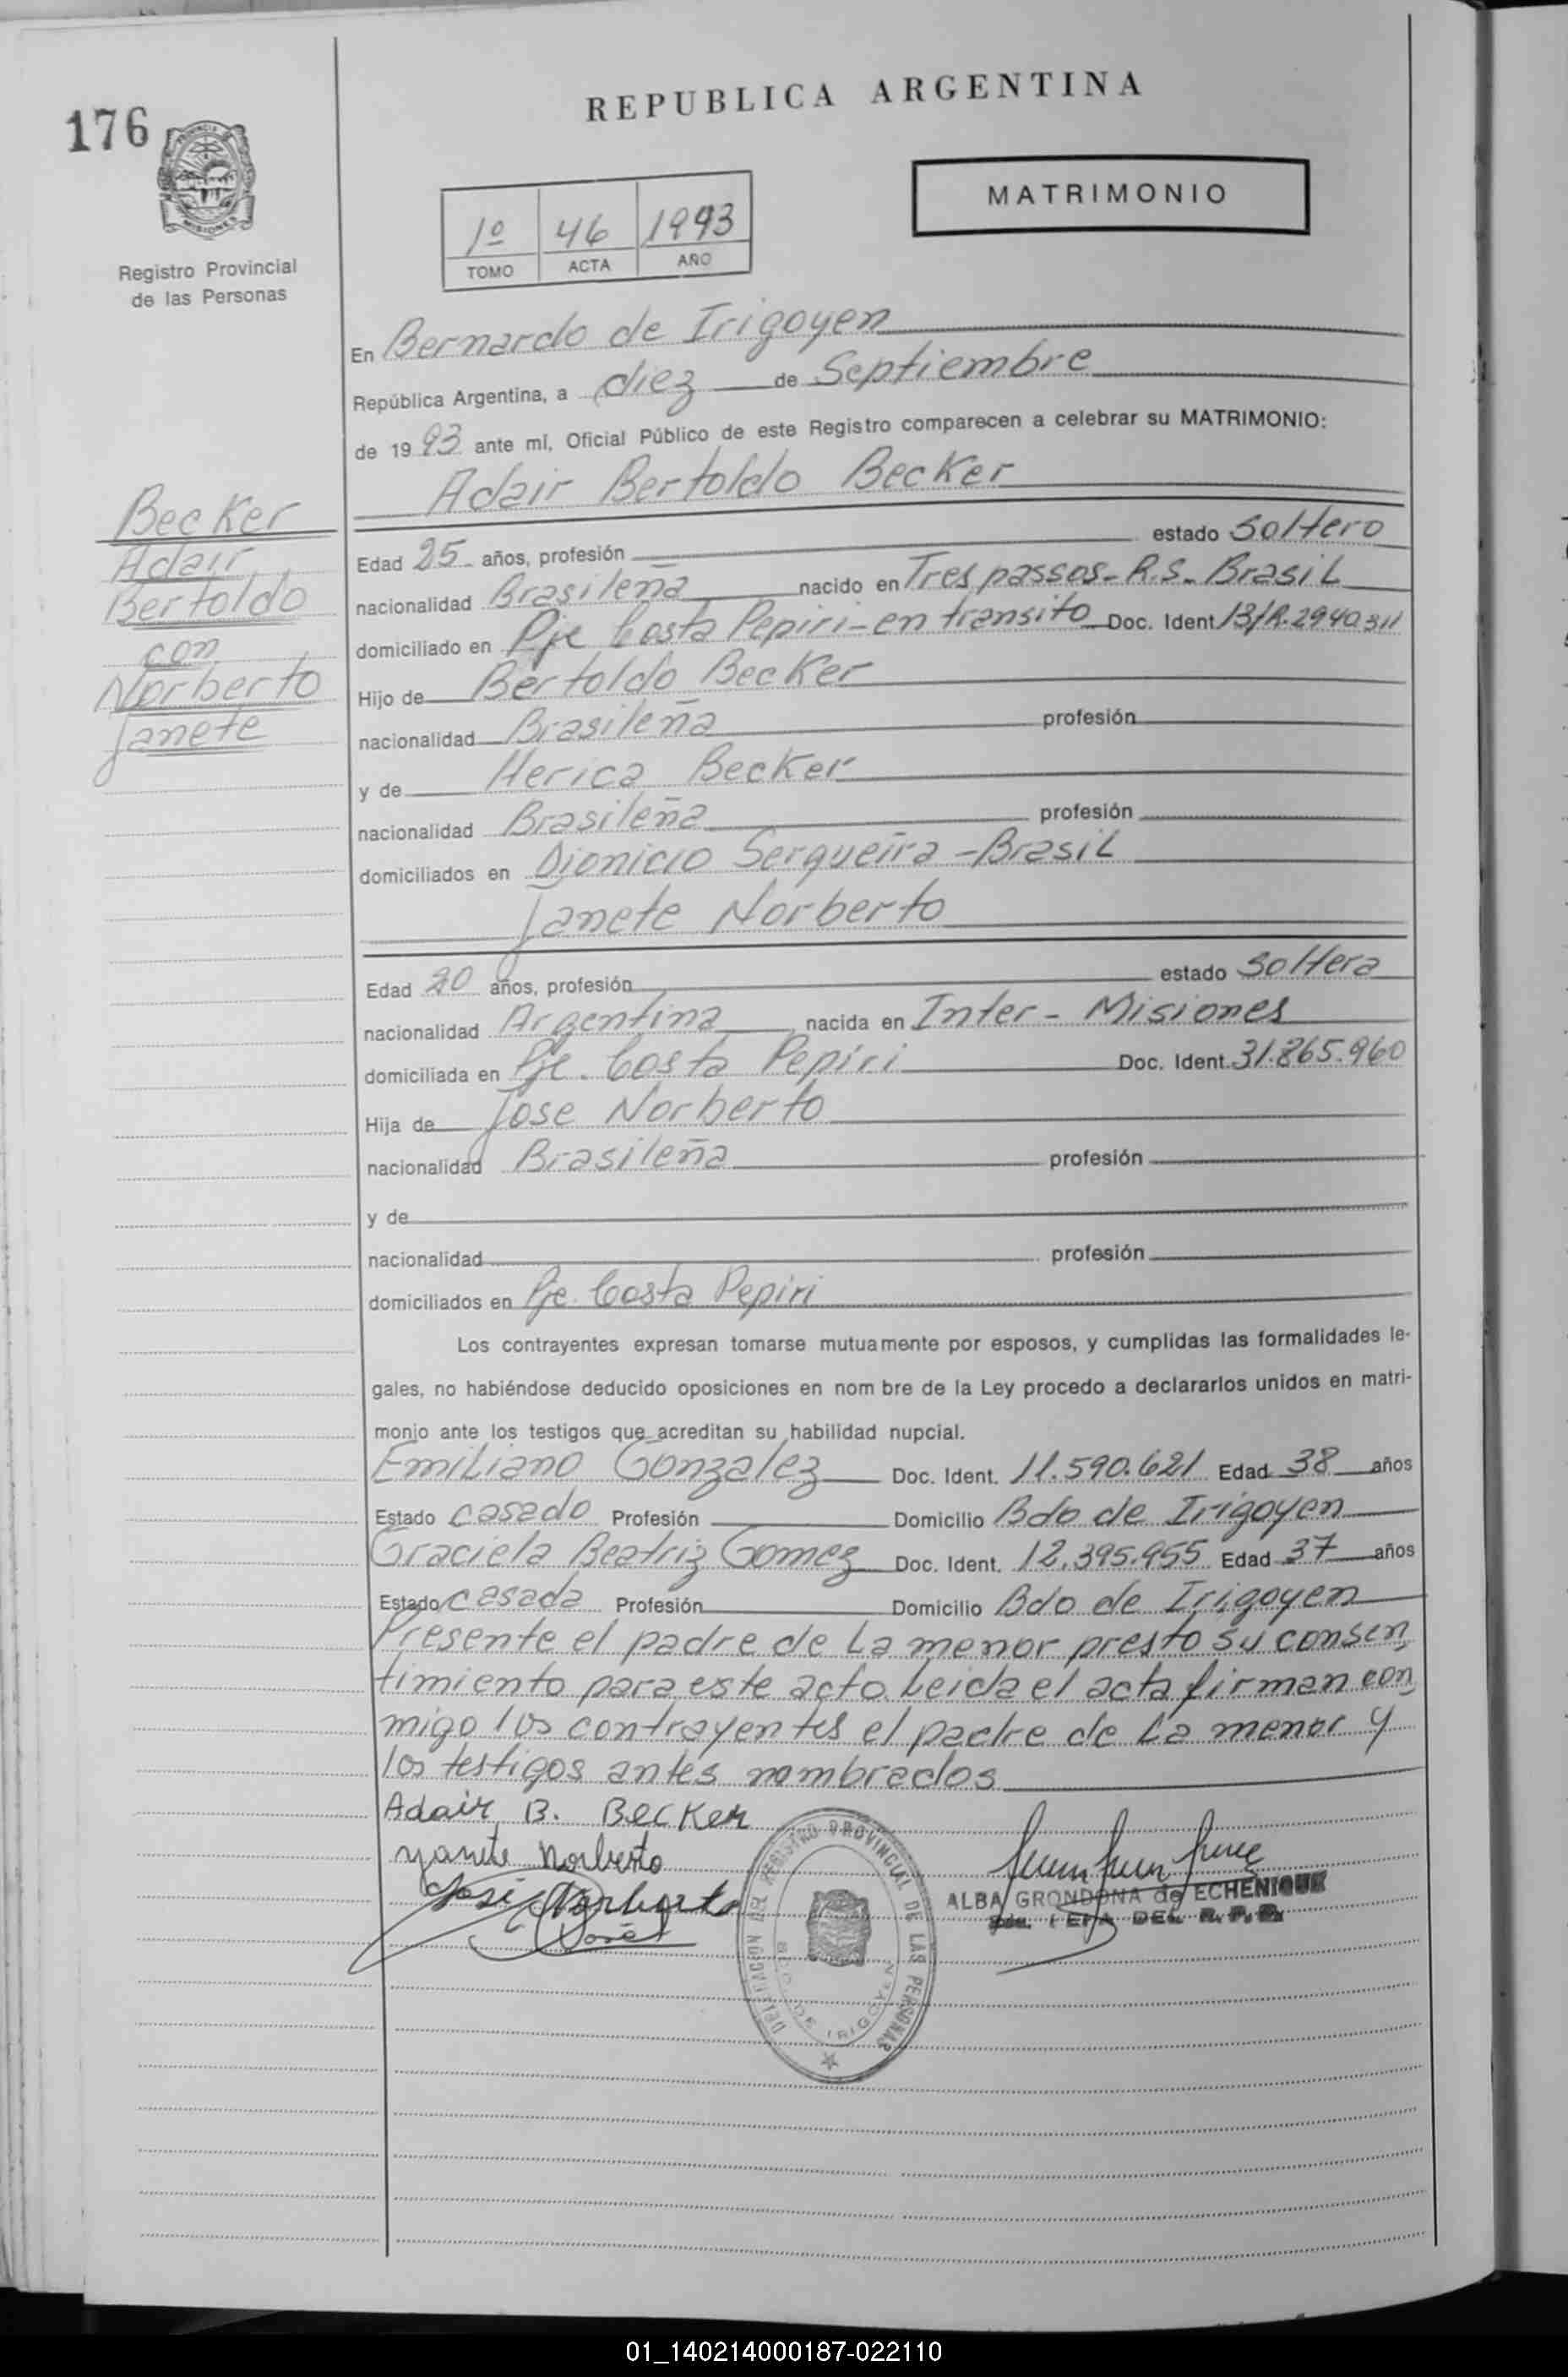 REPUBLICA ARGENTINA
176
MATRIMONIO
1º 46 1993
TOMO ACTA AÑO
Registro Provincial
de las Personas
En Bernardo de Irigoyen
República Argentina, a diez de Septiembre
de 1993 ante mí, Oficial Público de este Registro comparecen a celebrar su MATRIMONIO:
Adair Bertoldo Becker
Becker
Adair
Bertoldo
con
Norberto
Janete
Edad 25 años, profesión estado Soltero
nacionalidad Brasileña nacido en Tres passos - R.S. - Brasil
domiciliado en Pje Costa Pepiri - en transito Doc. Ident. 13/R.2940311
Hijo de Bertoldo Becker
nacionalidad Brasileña profesión
y de Herica Becker
nacionalidad Brasileña profesión
domiciliados en Dionicio Serqueira - Brasil
Janete Norberto
Edad 20 años, profesión estado Soltera
nacionalidad Argentina nacida en Inter - Misiones
domiciliada en Pje. Costa Pepiri Doc. Ident. 31.865.960
Hija de Jose Norberto
nacionalidad Brasileña profesión
y de
nacionalidad profesión
domiciliados en Pje. Costa Pepiri
Los contrayentes expresan tomarse mutuamente por esposos, y cumplidas las formalidades le-
gales, no habiéndose deducido oposiciones en nom bre de la Ley procedo a declararlos unidos en matri-
monio ante los testigos que acreditan su habilidad nupcial.
Emiliano Gonzalez Doc. Ident. 11.590.621 Edad 38 años
Estado casado Profesión Domicilio Bdo de Irigoyen
Graciela Beatriz Gomez Doc. Ident. 12.395.955 Edad 37 años
Estado casada Profesión Domicilio Bdo de Irigoyen
Presente el padre de la menor presto su consen
timiento para este acto. Leida el acta firman con
migo los contrayentes el padre de la menor y
los testigos antes nombrados
Adair B. Becker
yanete Norberto
José Norberto
DELEGACION DEL REGISTRO PROVINCIAL DE LAS PERSONAS
BDO. DE IRIGOYEN
ALBA GRONDONA de ECHENIQUE
DEL R. P. P.
01_140214000187-022110